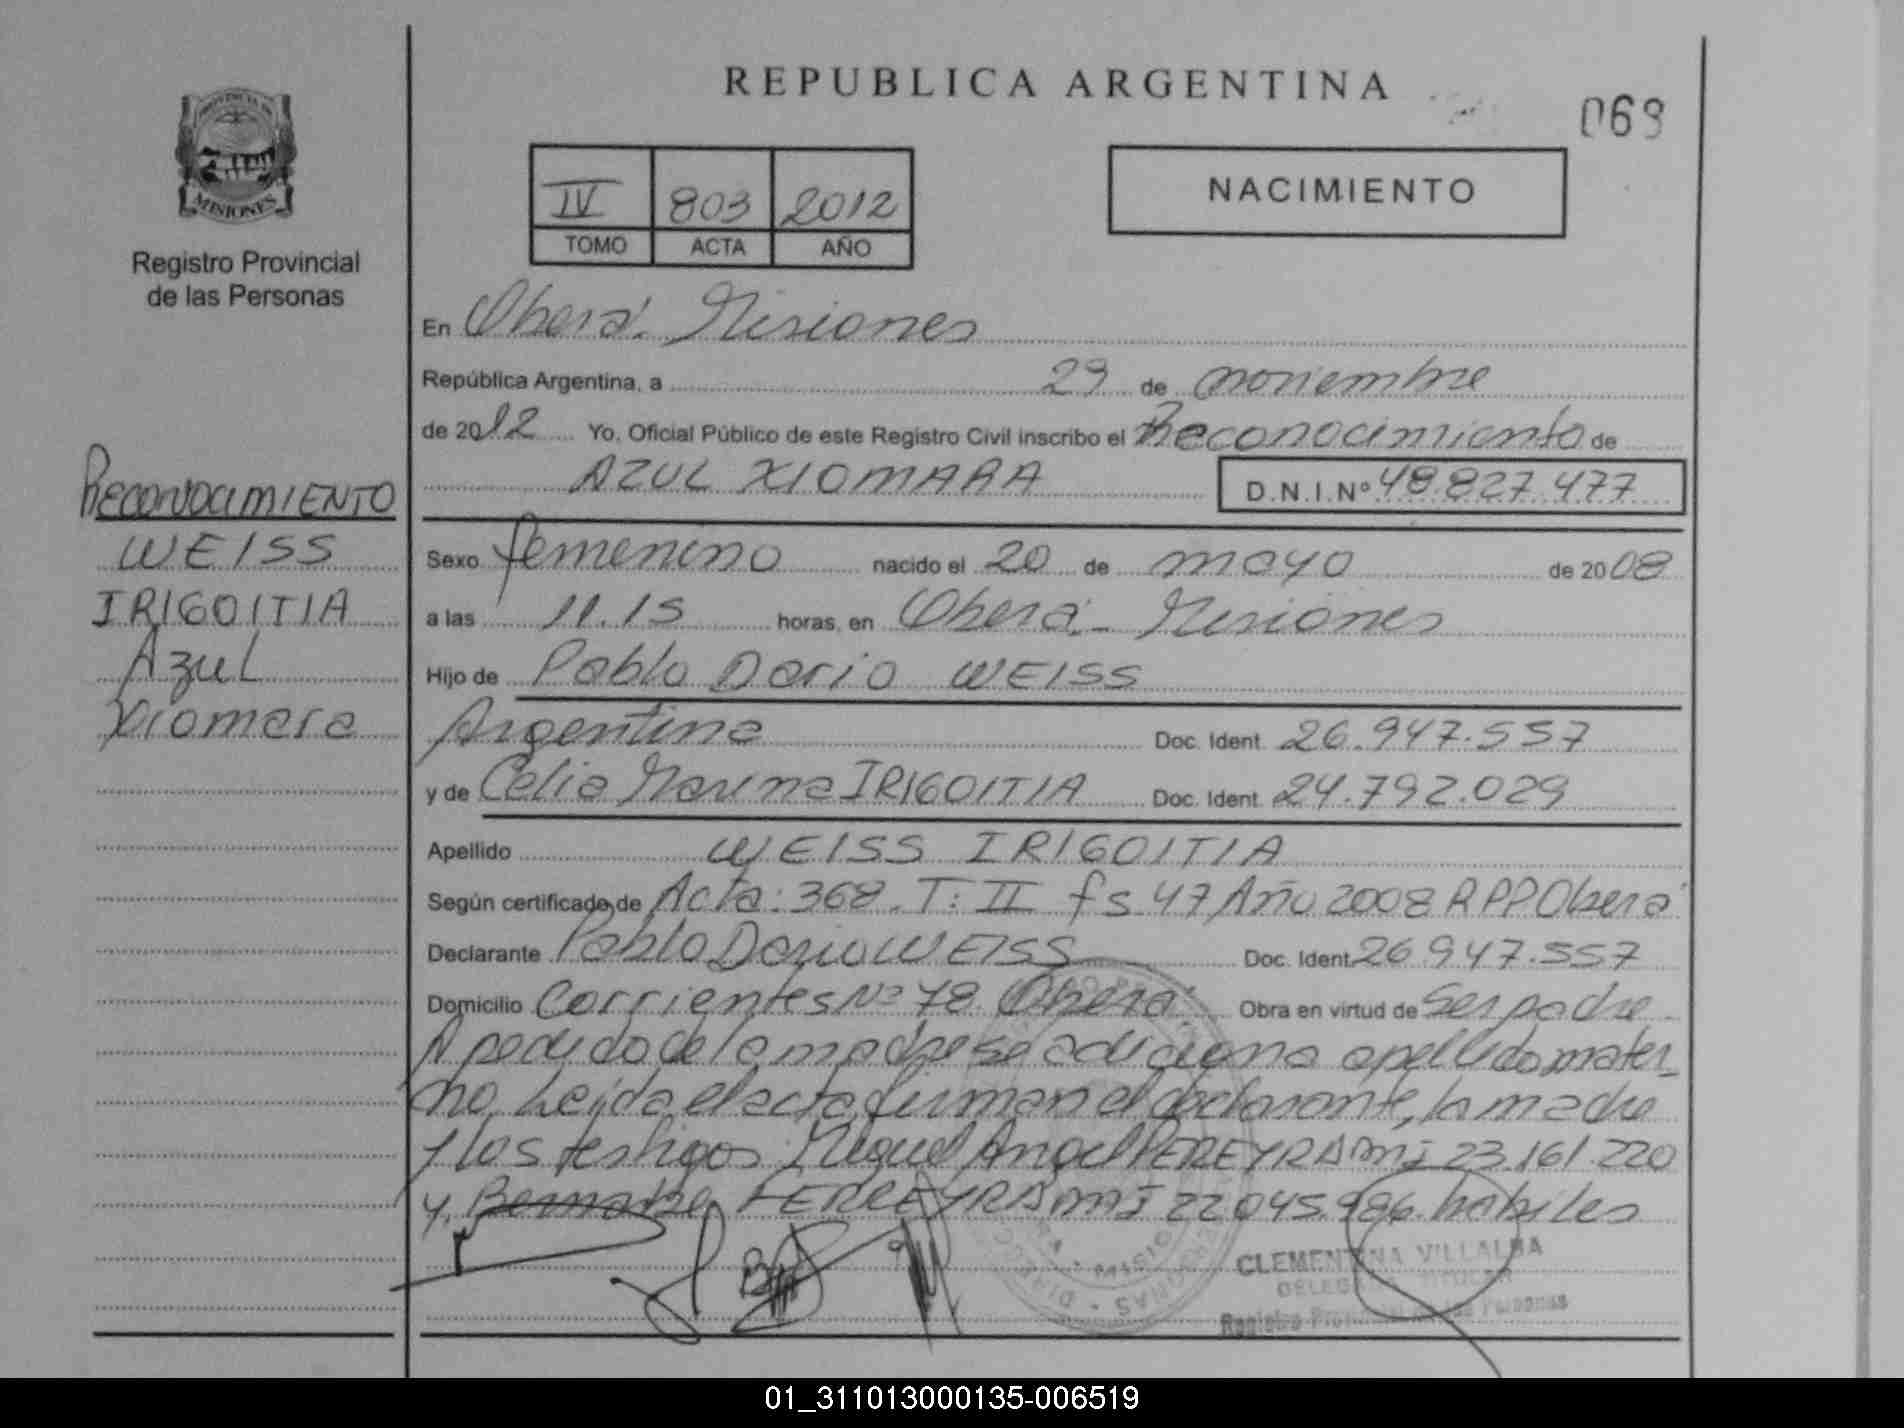 REPUBLICA ARGENTINA
069
PROVINCIA DE
MISIONES
Registro Provincial
de las Personas
IV 803 2012
TOMO ACTA AÑO
NACIMIENTO
En Oberá. Misiones
República Argentina, a 29 de noviembre
de 2012 Yo, Oficial Público de este Registro Civil inscribo el Reconocimiento de
AZUL XIOMARA D.N.I.Nº 48.827.477
RECONOCIMIENTO
WEISS
IRIGOITIA
Azul
Xiomara
Sexo femenino nacido el 20 de mayo de 2008
a las 11.15 horas, en Oberá - Misiones
Hijo de Pablo Dario WEISS
Argentina Doc. Ident. 26.947.557
y de Celia Marina IRIGOITIA Doc. Ident. 24.792.029
Apellido WEISS IRIGOITIA
Según certificado de Acta: 368. T: II fs 47 Año 2008 RPP Oberá
Declarante Pablo Dario WEISS Doc. Ident. 26.947.557
Domicilio Corrientes Nº 78. Oberá. Obra en virtud de Ser padre.
A pedido de la madre se adiciona apellido mater-
no. Leída el acta firman el declarante, la madre
y los testigos Miguel Angel PEREYRA MI 23.161.220
y FERREYRA MI 22.045.986 habiles
CLEMENTINA VILLALBA
DELEGADA TITULAR
Registro Provincial de las Personas
01_311013000135-006519